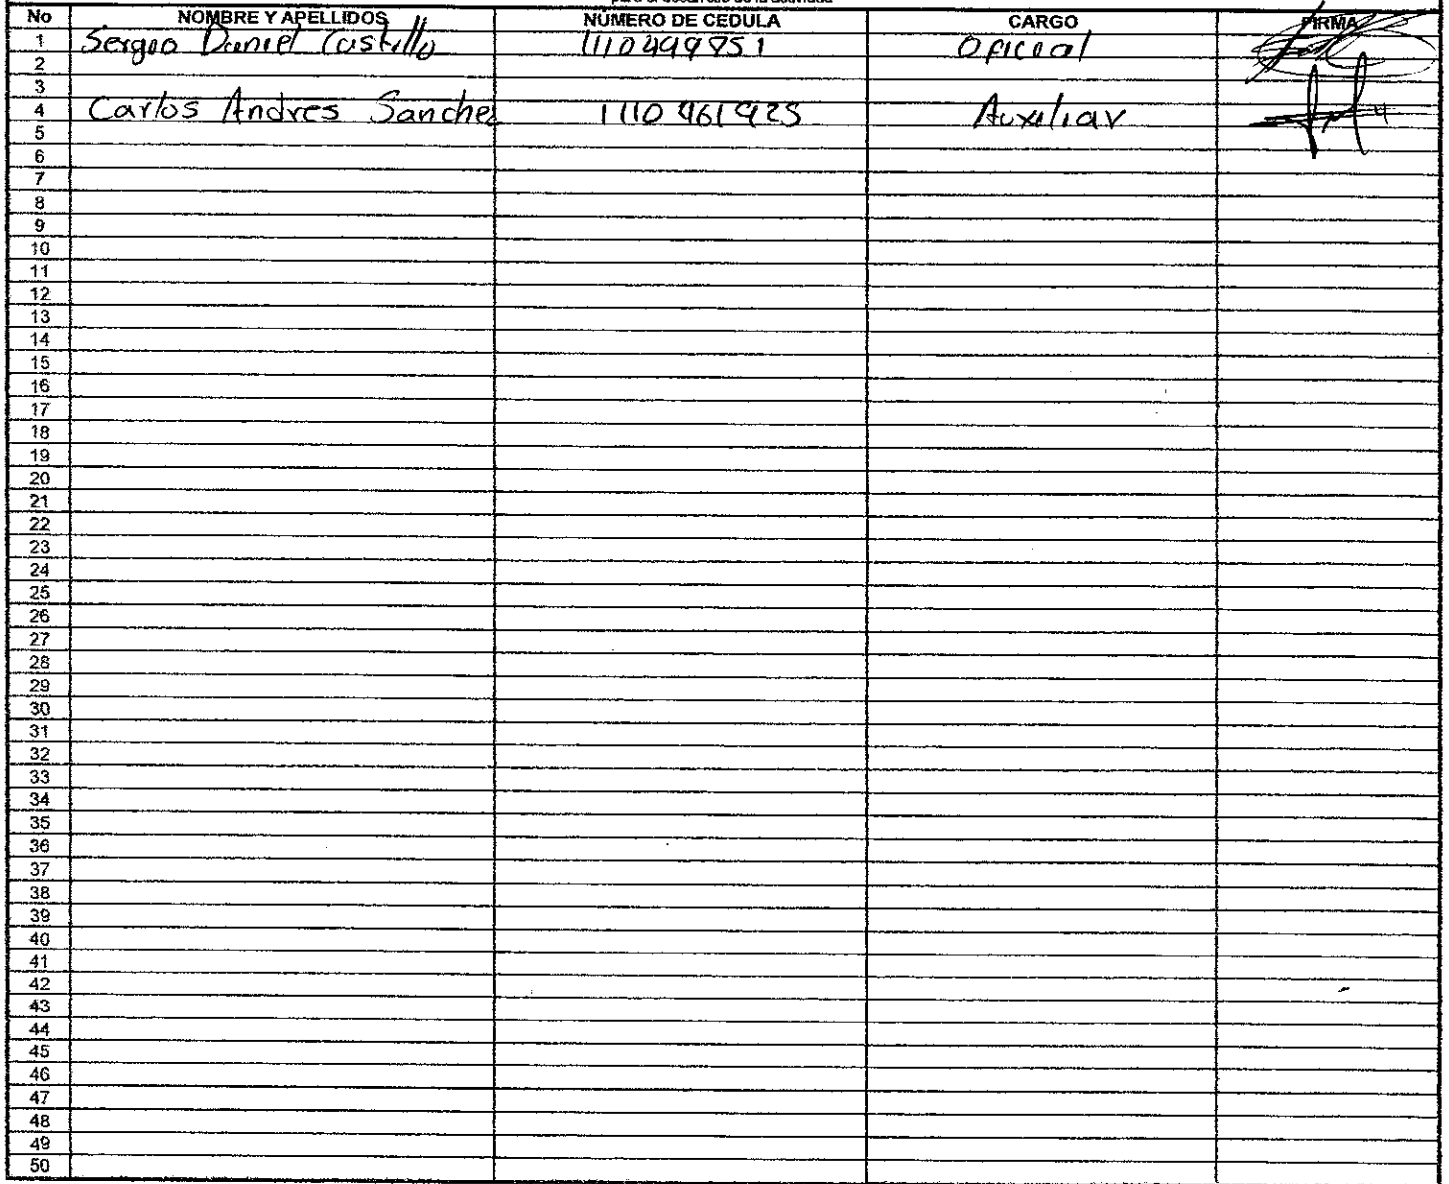 No NOMBRE Y APELLIDOS NUMERO DE CEDULA CARGO FIRMA
1 Sergio Daniel Castillo 1110499951 Oficial
2
3
4 Carlos Andres Sanchez 1110461925 Auxiliar
5
6
7
8
9
10
11
12
13
14
15
16
17
18
19
20
21
22
23
24
25
26
27
28
29
30
31
32
33
34
35
36
37
38
39
40
41
42
43
44
45
46
47
48
49
50